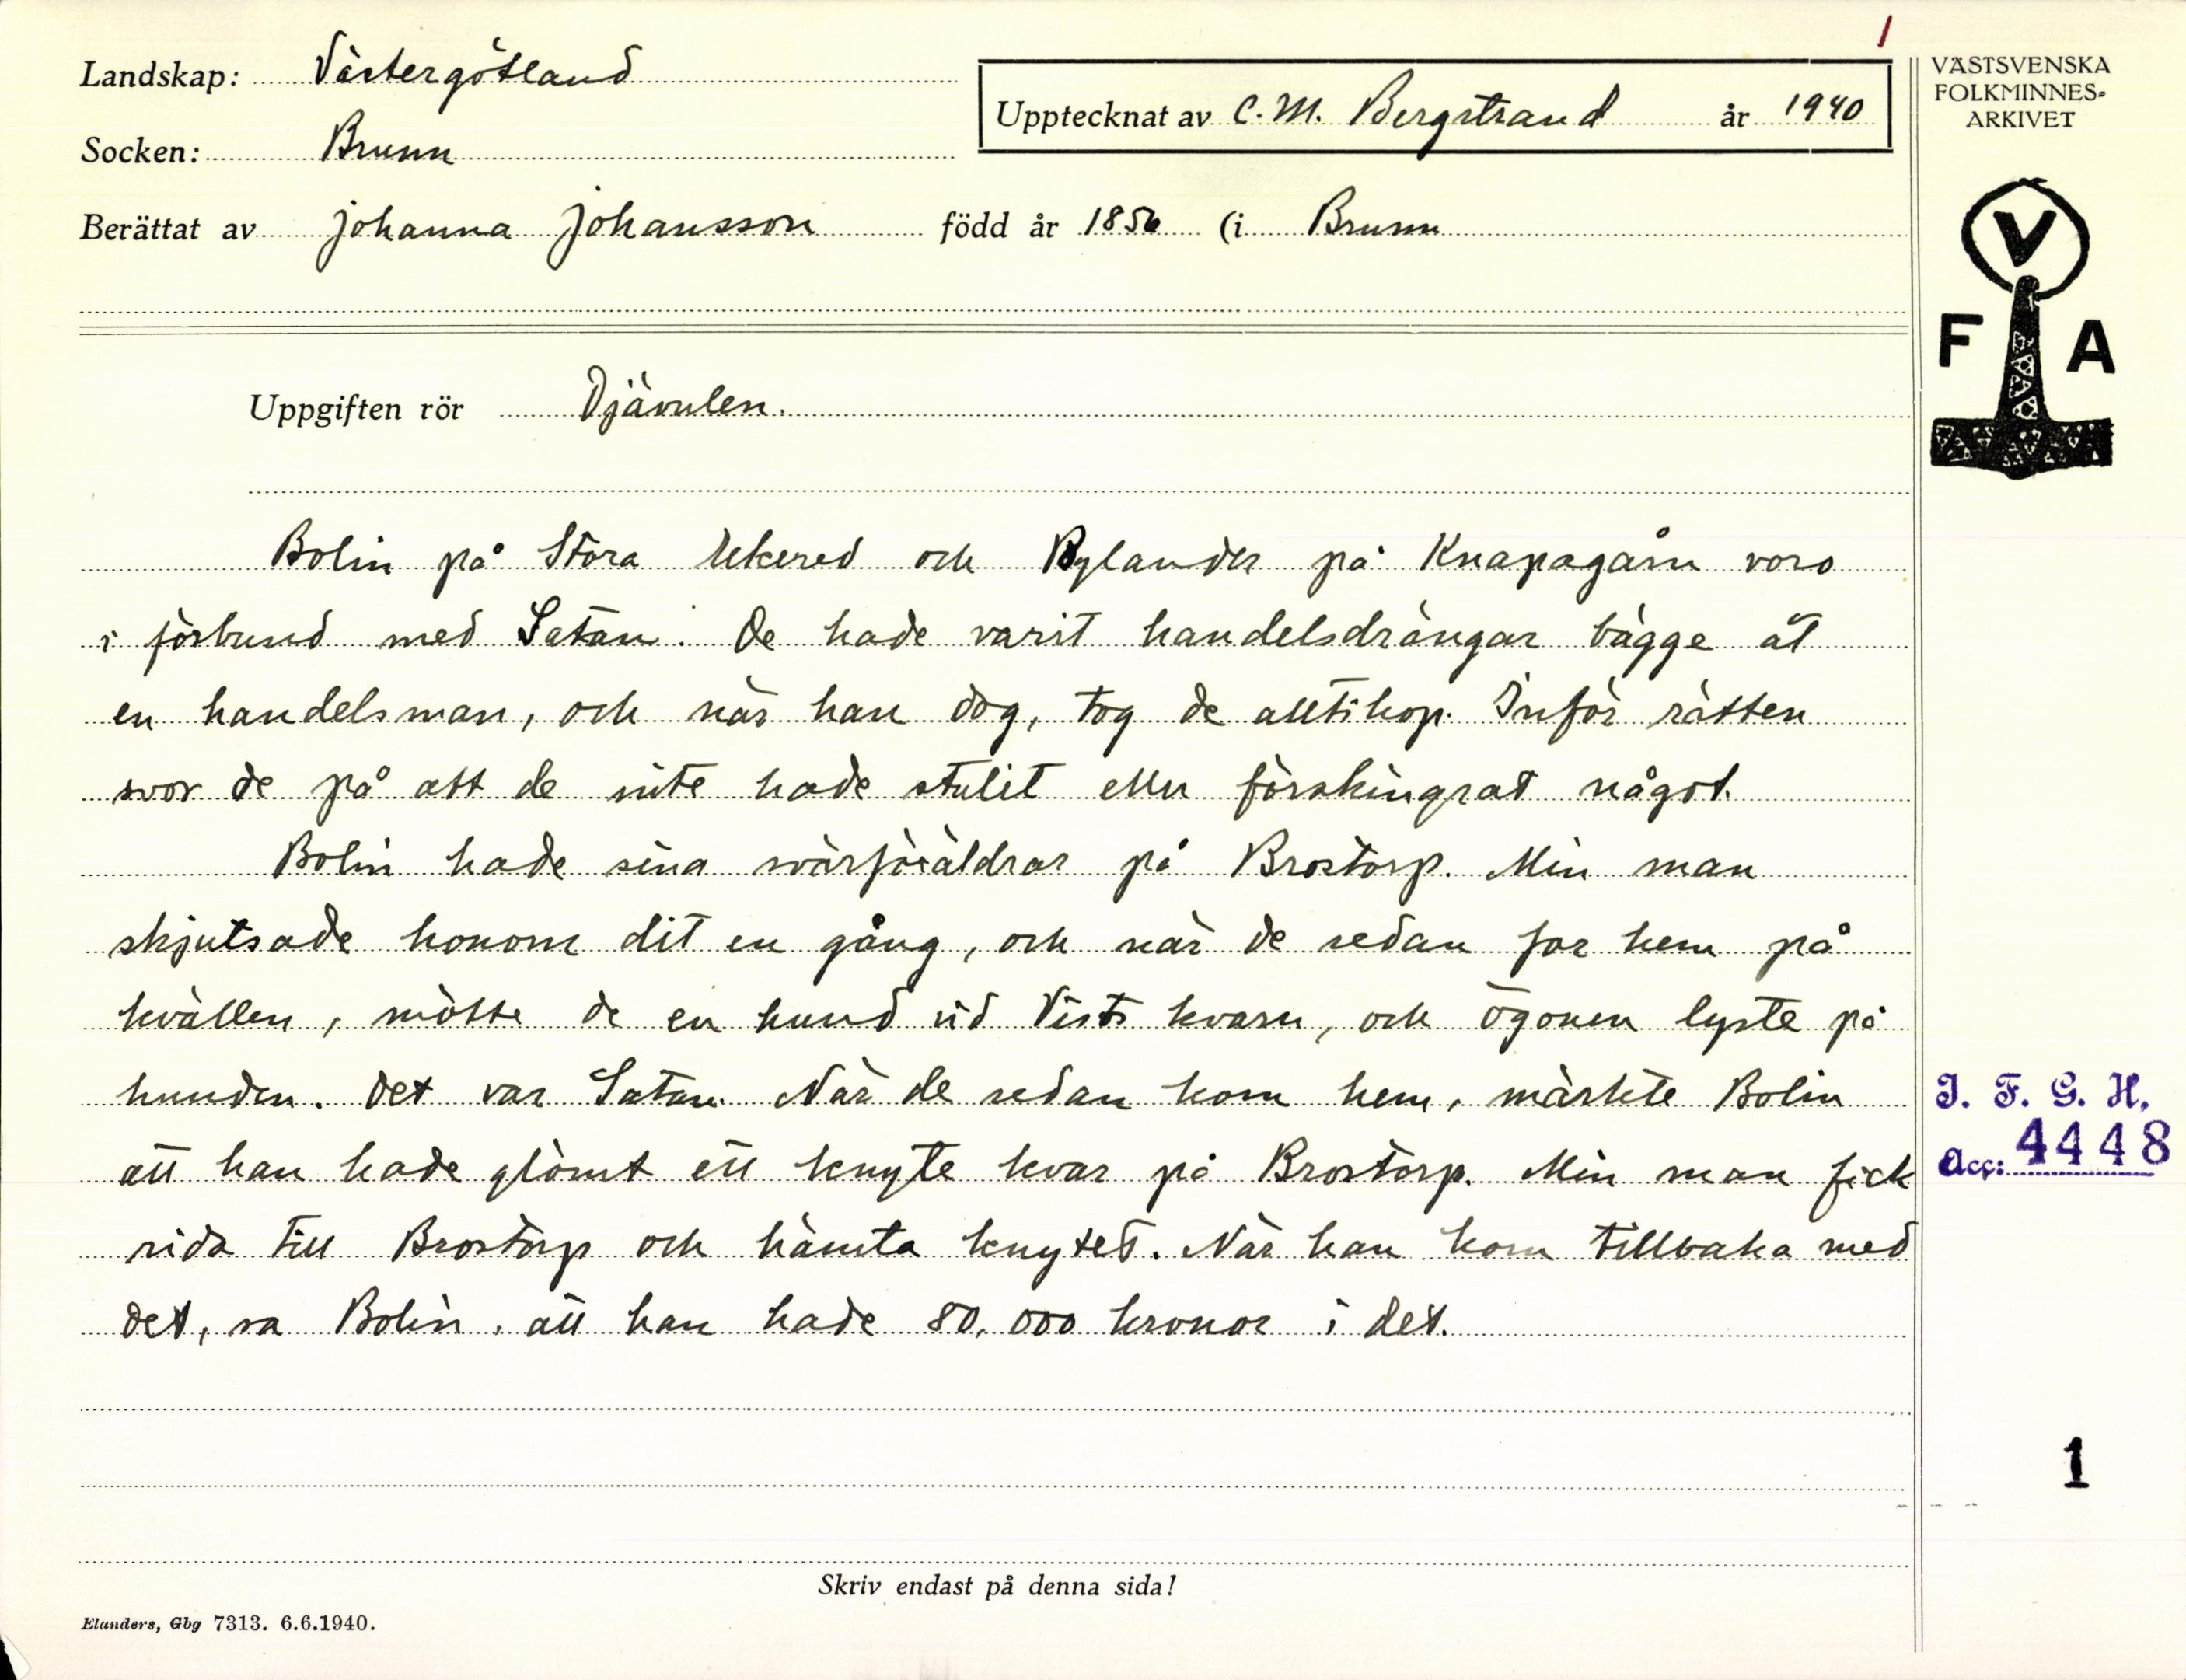 1
Landskap: Västergötland
Upptecknat av C. M. Bergstrand år 1940
Socken: Brunn
Berättat av Johanna Johansson född år 1856 (i Brunn
VÄSTSVENSKA
FOLKMINNES-
ARKIVET
V
F A
Uppgiften rör Djävulen.
Bolin på Stora Ukered och Rylander på Knapagårn voro
i förbund med Satan. De hade varit handelsdrängar bägge åt
en handelsman, och när han dog, tog de alltihop. Inför rätten
svor de på att de inte hade stulit eller förskingrat något.
Bolin hade sina svärföräldrar på Brostorp. Min man
skjutsade honom dit en gång, och när de sedan for hem på
kvällen, mötte de en hund vid Vists kvarn, och ögonen lyste på
hunden. Det var Satan. När de sedan kom hem, märkte Bolin
att han hade glömt ett knyte kvar på Brostorp. Min man fick
rida till Brostorp och hämta knytet. När han kom tillbaka med
det, sa Bolin, att han hade 80,000 kronor i det.
I. F. G. H.
Acc: 4448
1
Skriv endast på denna sida!
Elanders, Gbg 7313. 6.6.1940.